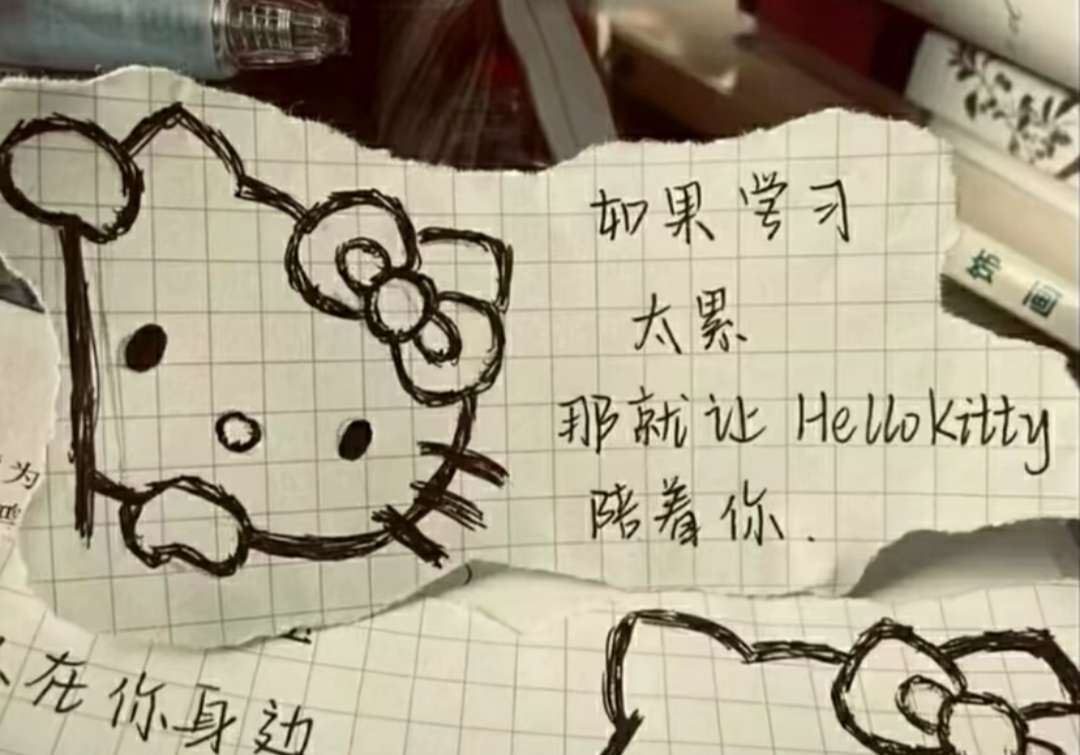 如果学习
太累
那就让 HelloKitty
陪着你.
饰 画
为
在你身边